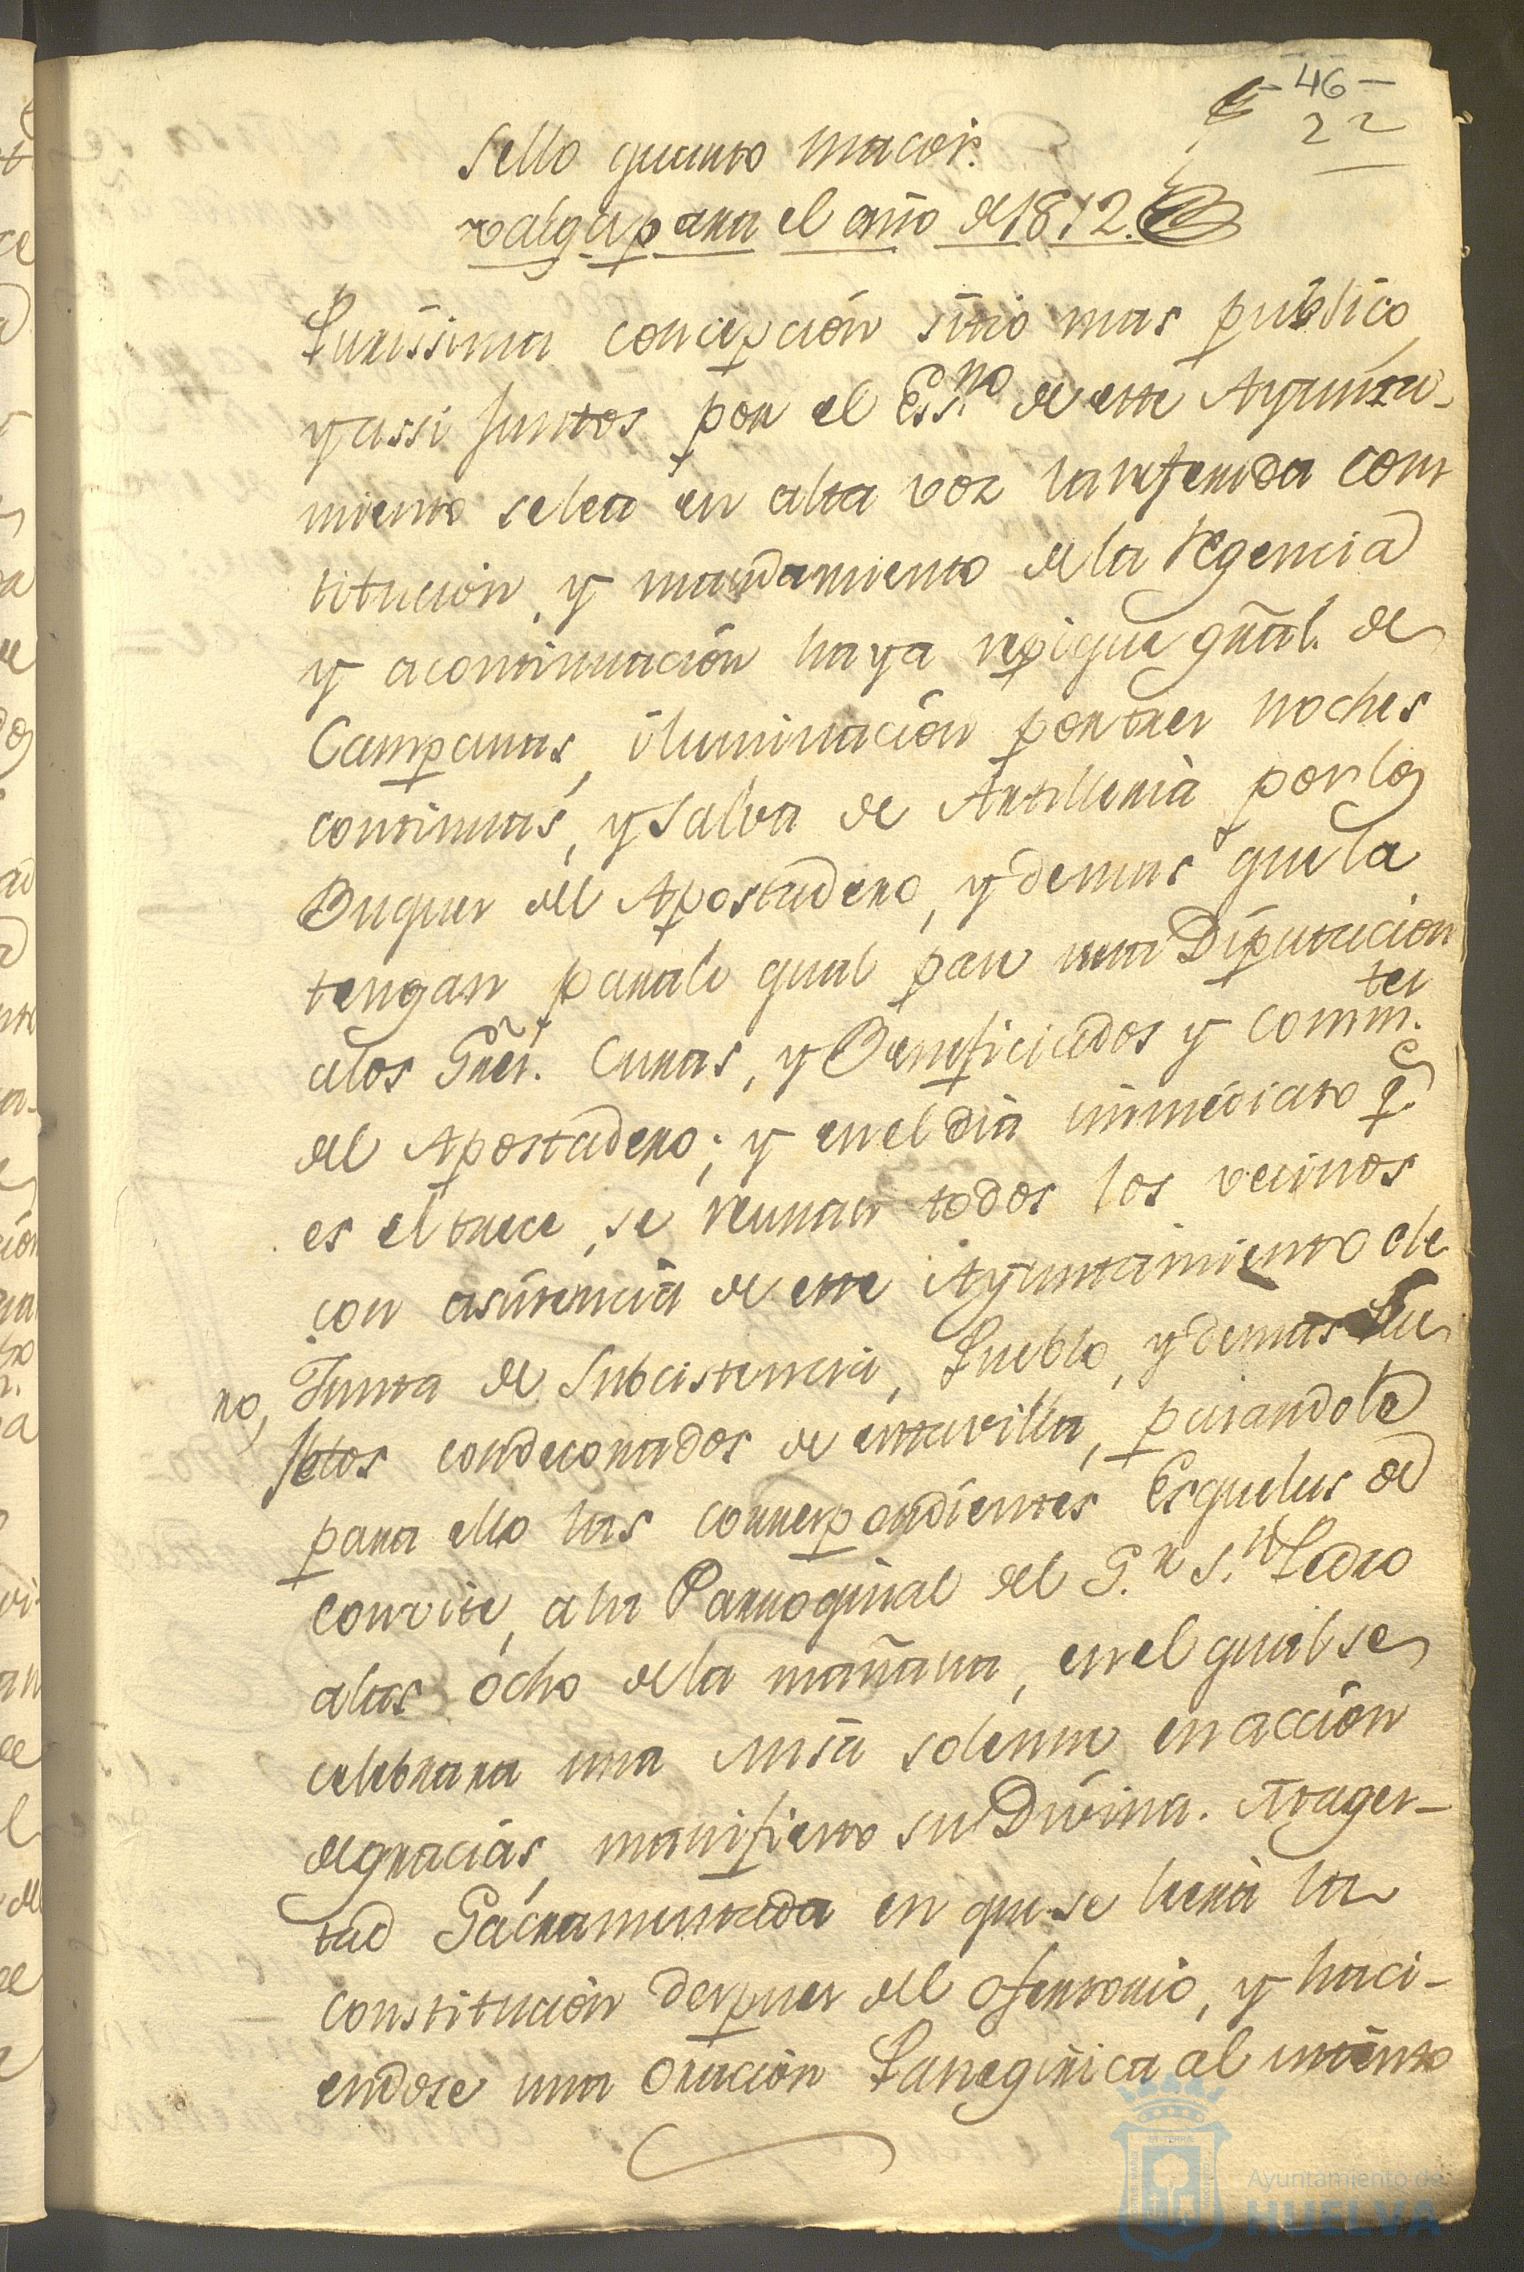 - 46 -
22
Sello quarto maior.
valga para el año de 1812.
Purissima concepción sitio mas publico,
y assi juntos por el Ess.no de este Ayunta-
miento se lea en alta voz la referida cons
titucion, y mandamiento de la Regencia
y acontinuación haya repique gñal. de
Campanas, iluminación por tres noches
continuas, y salva de Artilleria por los
Buques del Apostadero, y demas que la
tengan para lo qual pase una Diputacion
a los Sres. Curas, y Beneficiados y Comm.tes
del Apostadero; y en el dia immediato q.e
es el trece, se reunan todos los vecinos
con asistencia de este Ayuntamiento cle
ro, Junta de Subcistencia, Pueblo, y demas Su
jetos condecorados de esta villa, pasandole
para ello las correspondientes Esquelas de
convite, a la Parroquial del S.r S.n Pedro
a las ocho de la mañana, en el qual se
celebrara una Misa solemne en acción
de gracias, manifiesto su Divina. Mages-
tad Sacramentada en que se leerá la
constitución despues del ofertorio, y haci-
endose una oración Panegirica al intento
Ayuntamiento de
HUELVA